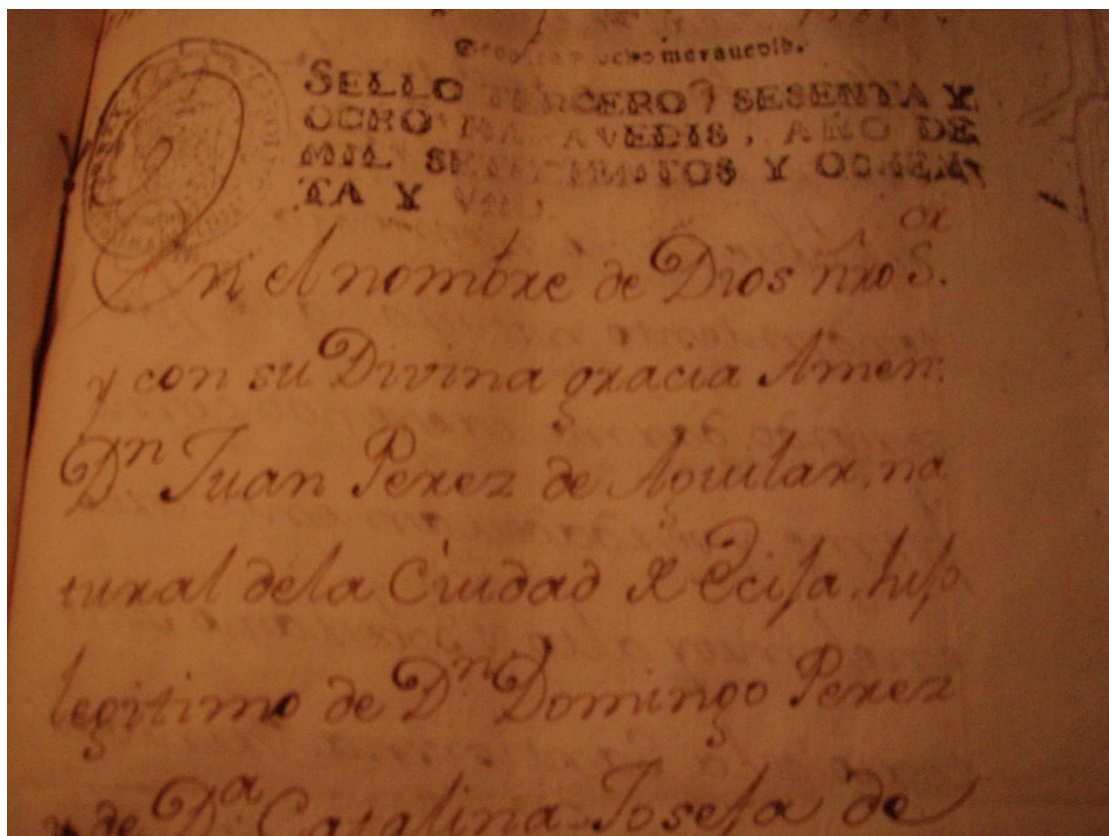 ocho maravedis.
SELLO TERCERO, SESENTA Y
OCHO MARAVEDIS, AÑO DE
MIL SETECIENTOS Y OCHEN-
TA Y VNO.
En el nombre de Dios nro S.or
y con su Divina gracia Amen:
Dn Juan Perez de Aguilar, na
tural dela Ciudad de Ecija, hijo
legitimo de Dn Domingo Perez
y de Da Catalina Josefa de